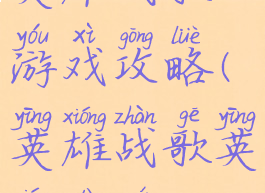 yóu xì gōng lüè
游戏攻略(
yīng xióng zhàn gē yīng
英雄战歌英